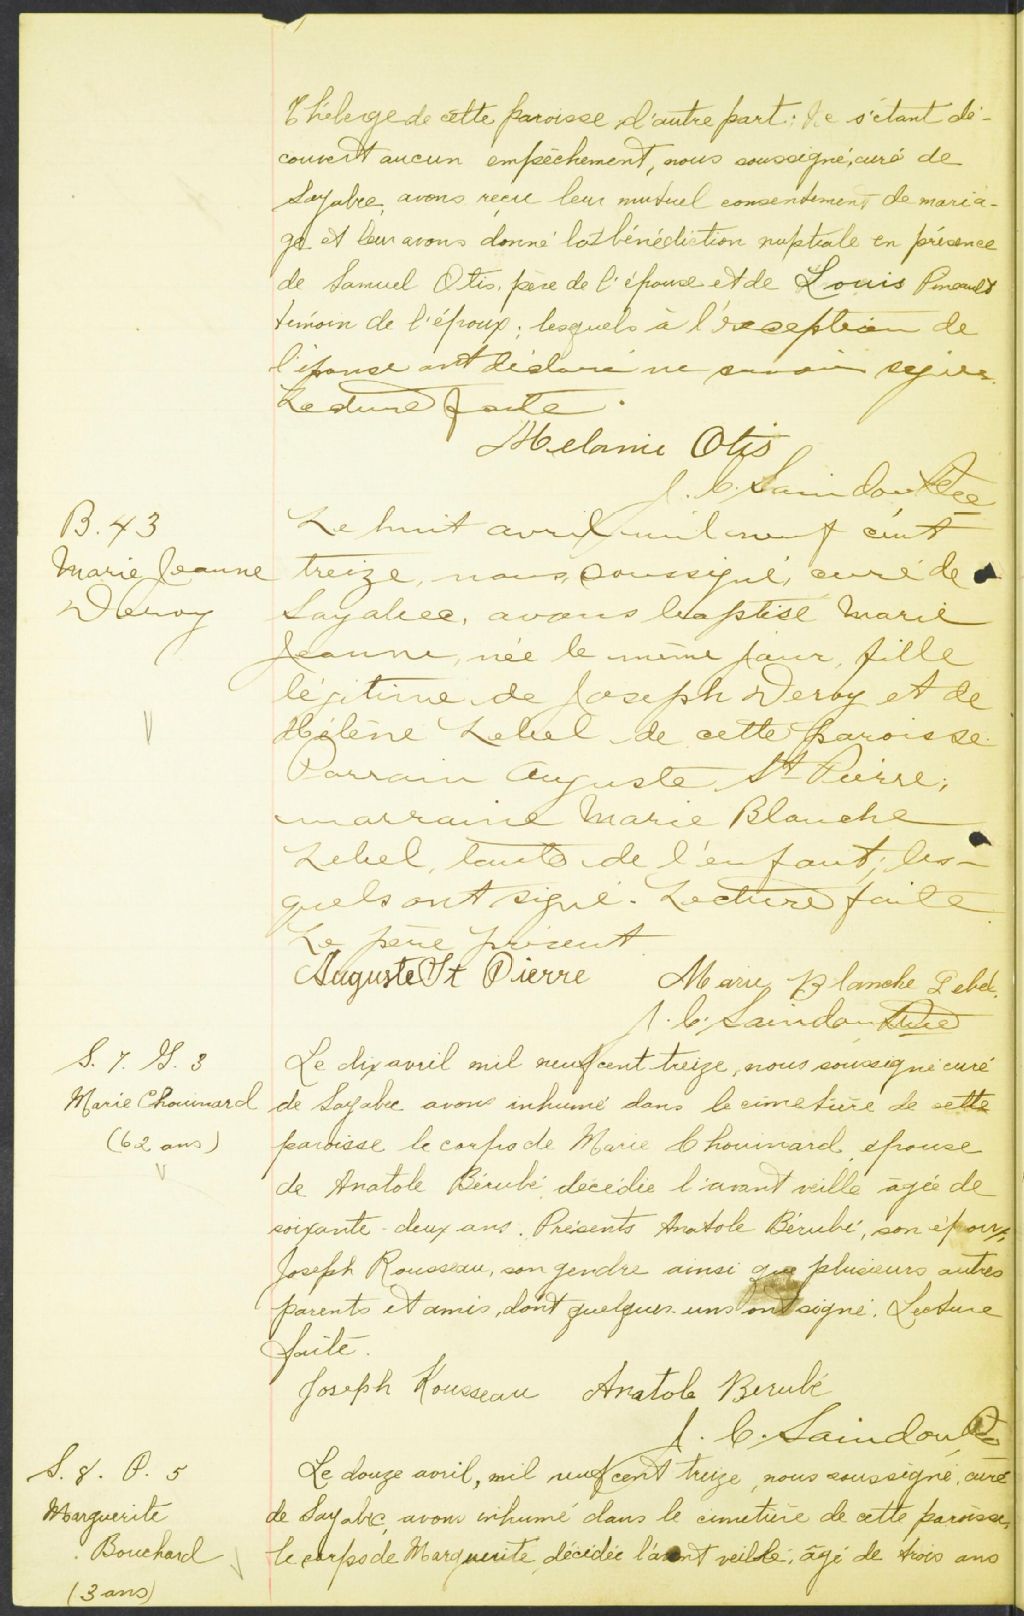 Théberge de cette paroisse d'autre part; Ne s'étant dé-
couvert aucun empêchement, nous soussigné, curé de
Sayabec, avons reçu leur mutuel consentement de maria-
ge et leur avons donné la bénédiction nuptiale en présence
de Samuel Otis, père de l'épouse et de Louis Pineault
témoin de l'époux; lesquels à l'exception de
l'épouse ont déclaré ne savoir signer.
Lecture faite.
Melanie Otis
J. C. Saindon Ptre
B. 43
Marie Jeanne
Deroy
Le huit avril mil neuf cent
treize, nous, soussigné, curé de
Sayabec, avons baptisé Marie
Jeanne, née le même jour, fille
légitime de Joseph Deroy et de
Hélène Lebel de cette paroisse.
Parrain Auguste St Pierre;
marraine Marie Blanche
Lebel, tante de l'enfant; les-
quels ont signé. Lecture faite
Le père présent
Auguste St Pierre Marie Blanche Lebel.
J. C. Saindon Ptre
S. 7. G. 3
Marie Chouinard
(62 ans)
Le dix avril mil neuf cent treize, nous soussigné curé
de Sayabec avons inhumé dans le cimetière de cette
paroisse le corps de Marie Chouinard, épouse
de Anatole Bérubé, décédée l'avant veille âgée de
soixante-deux ans. Présents Anatole Bérubé, son époux,
Joseph Rousseau, son gendre ainsi que plusieurs autres
parents et amis, dont quelques-uns ont signé. Lecture
faite.
Joseph Rousseau Anatole Berubé
J. C. Saindon Ptre
S. 8. P. 5
Marguerite
Bouchard
(3 ans)
Le douze avril, mil neuf cent treize, nous soussigné, curé
de Sayabec, avons inhumé dans le cimetière de cette paroisse,
le corps de Marguerite, décédée l'avant veille, âgé de trois ans